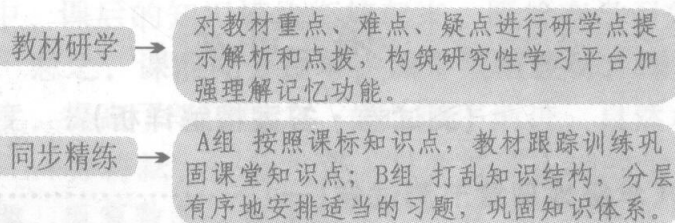 教材研学
对教材重点、难点、疑点进行研学点提
示解析和点拨，构筑研究性学习平台加
强理解记忆功能。
同步精练
A组 按照课标知识点，教材跟踪训练巩
固课堂知识点；B组 打乱知识结构，分层
有序地安排适当的习题，巩固知识体系。